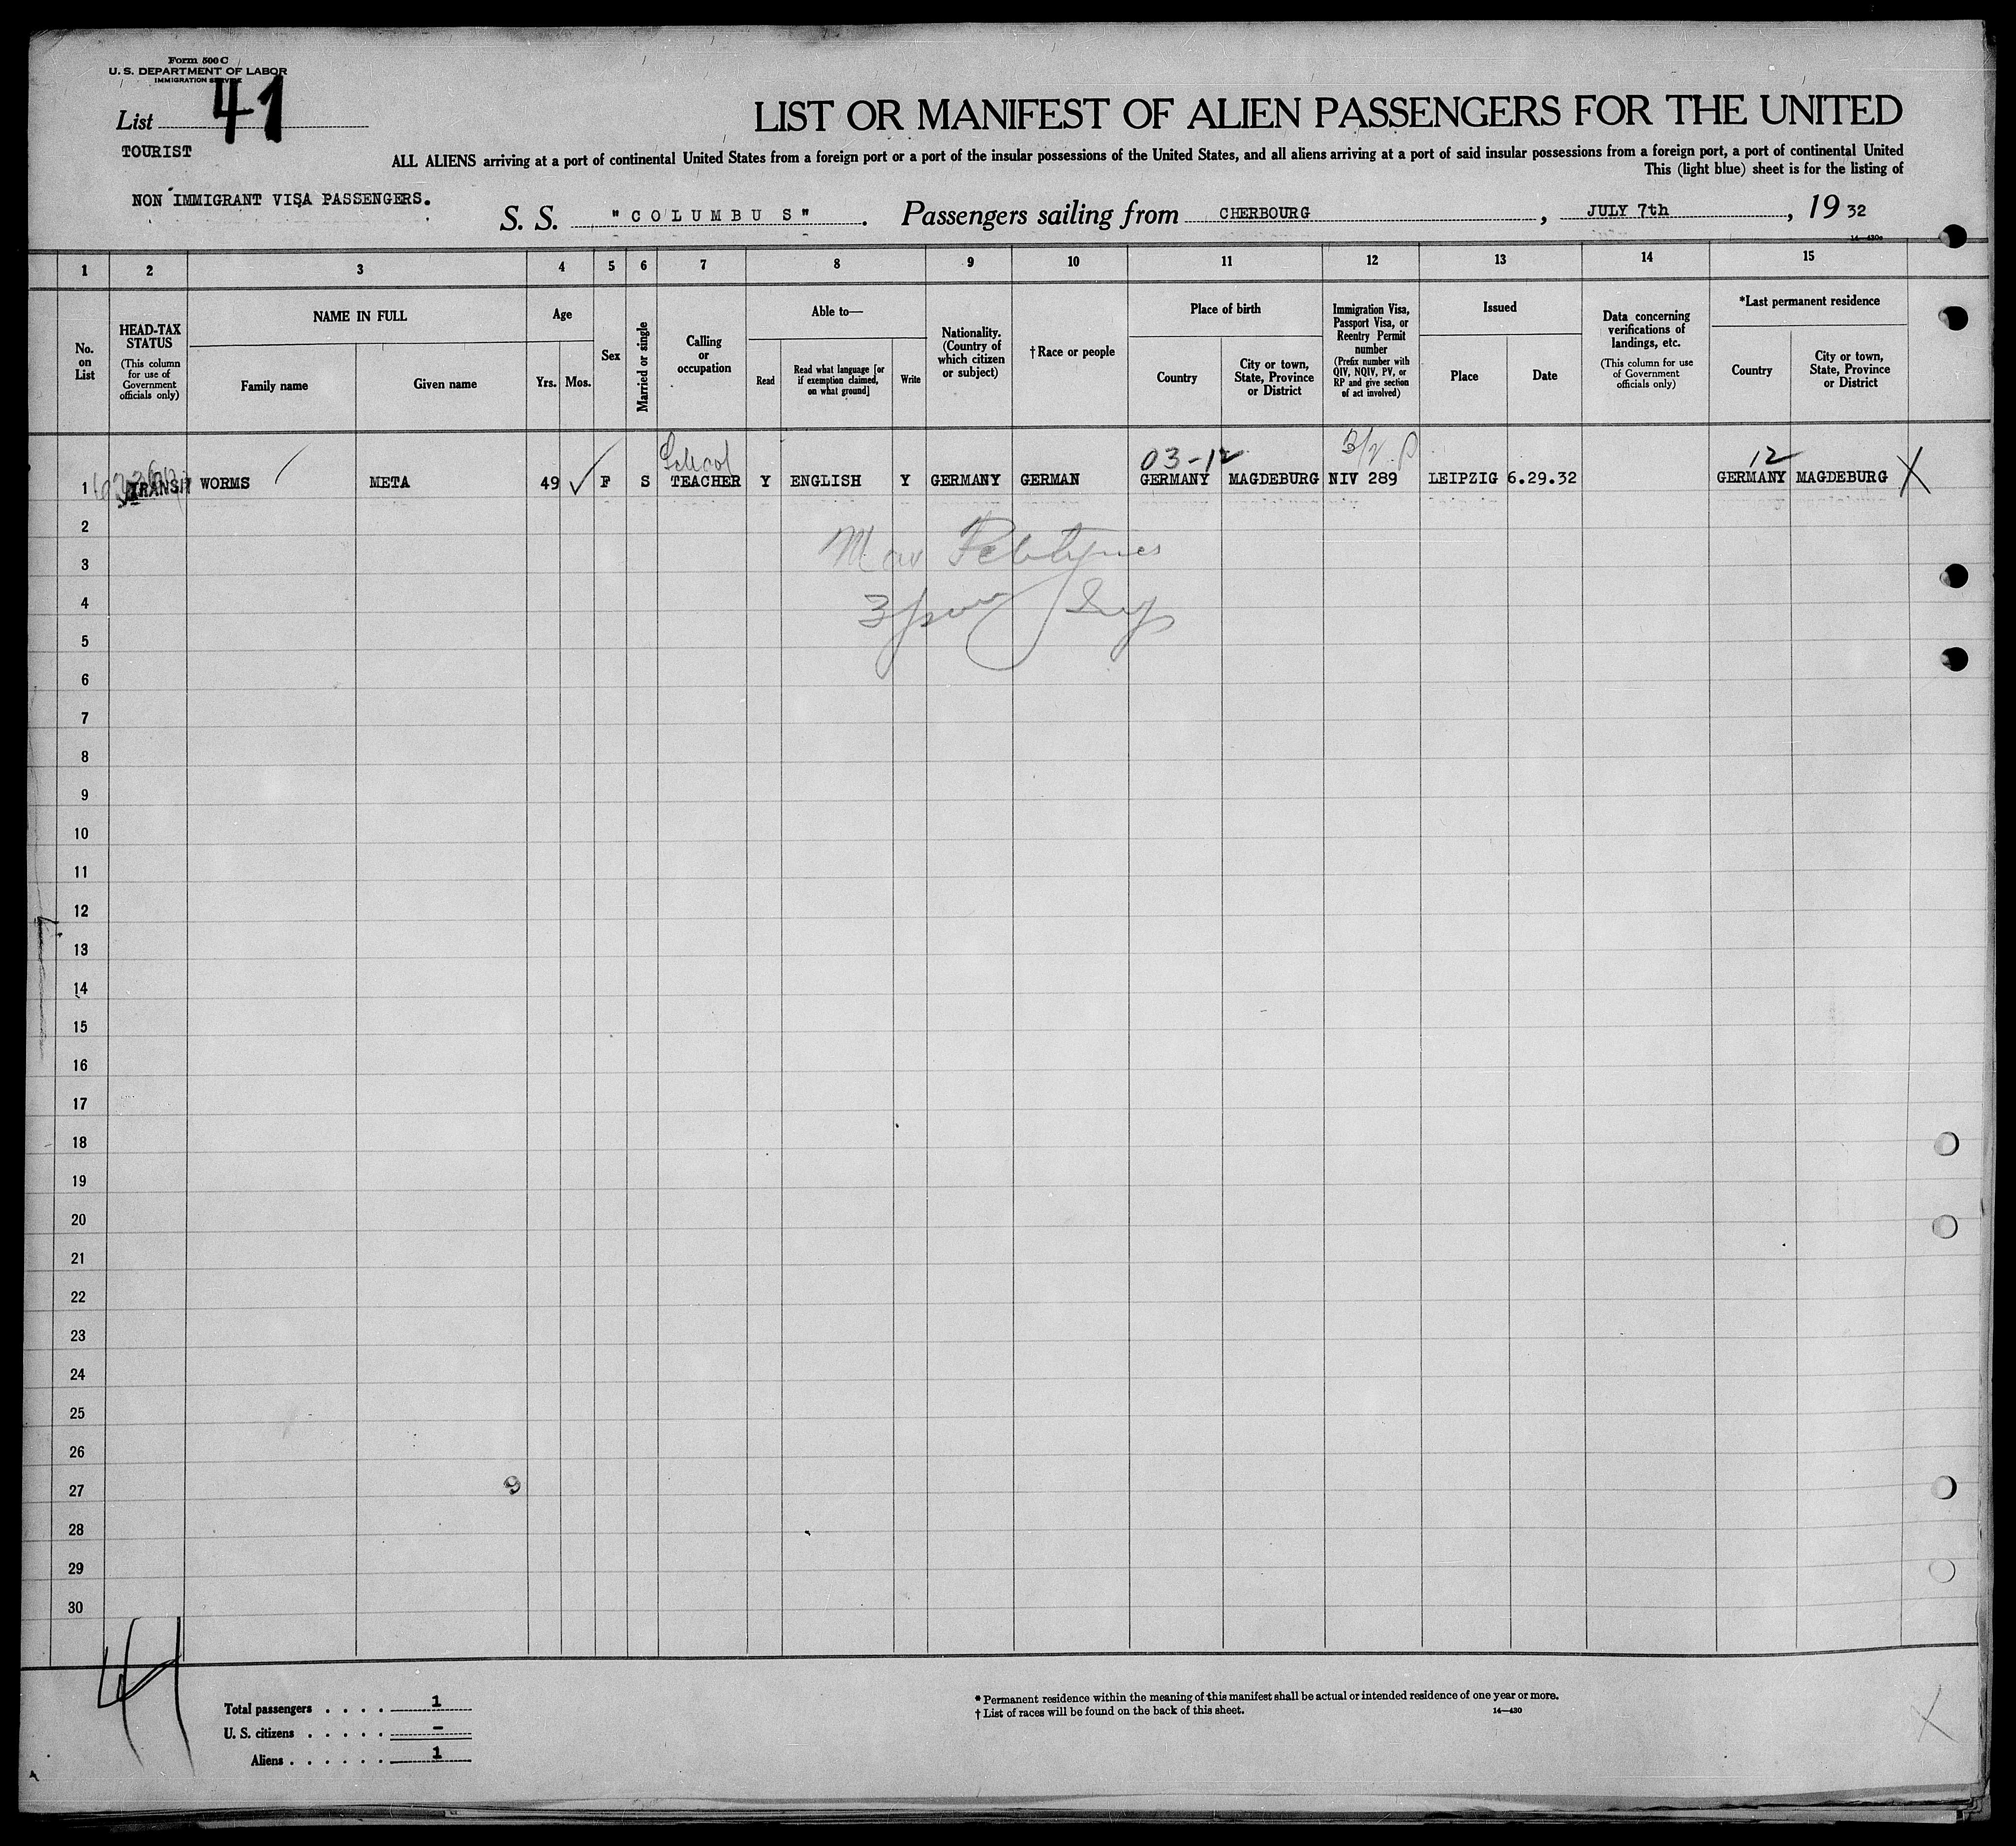 Form 500 C
U. S. DEPARTMENT OF LABOR
IMMIGRATION SERVICE
List 41
TOURIST
NON IMMIGRANT VISA PASSENGERS.
LIST OR MANIFEST OF ALIEN PASSENGERS FOR THE UNITED
ALL ALIENS arriving at a port of continental United States from a foreign port or a port of the insular possessions of the United States, and all aliens arriving at a port of said insular possessions from a foreign port, a port of continental United
This (light blue) sheet is for the listing of
S. S. "COLUMBUS". Passengers sailing from CHERBOURG, JULY 7th, 19 32
14—430a
1 2 3 4 5 6 7 8 9 10 11 12 13 14 15
No. on List
HEAD-TAX STATUS
(This column for use of Government officials only)
NAME IN FULL
Family name
Given name
Age
Yrs. Mos.
Sex
Married or single
Calling or occupation
Able to—
Read
Read what language [or if exemption claimed, on what ground]
Write
Nationality. (Country of which citizen or subject)
† Race or people
Place of birth
Country
City or town, State, Province or District
Immigration Visa, Passport Visa, or Reentry Permit number
(Prefix number with QIV, NQIV, PV, or RP and give section of act involved)
Issued
Place
Date
Data concerning verifications of landings, etc.
(This column for use of Government officials only)
*Last permanent residence
Country
City or town, State, Province or District
School 03-12 12
1 TRANSIT WORMS META 49 F S TEACHER Y ENGLISH Y GERMANY GERMAN GERMANY MAGDEBURG NIV 289 LEIPZIG 6.29.32 GERMANY MAGDEBURG X
2
3
4
5
6
7
8
9
10
11
12
13
14
15
16
17
18
19
20
21
22
23
24
25
26
27
9
28
29
30
41
Total passengers . . . . 1
U. S. citizens . . . . . –
Aliens . . . . . . 1
* Permanent residence within the meaning of this manifest shall be actual or intended residence of one year or more.
† List of races will be found on the back of this sheet.
14—430
X